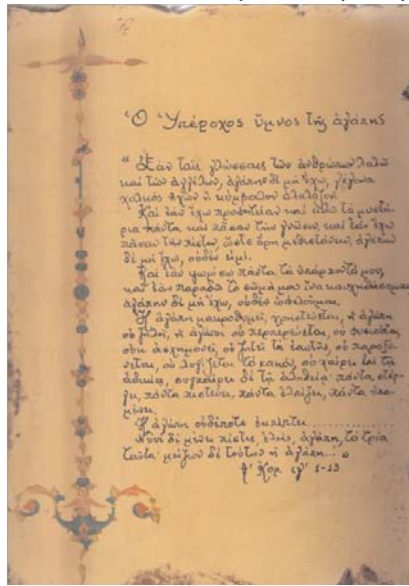 Ὁ Ὑπέροχος ὕμνος τῆς ἀγάπης
“Ἐὰν ταῖς γλώσσαις τῶν ἀνθρώπων λαλῶ
καὶ τῶν ἀγγέλων, ἀγάπην δὲ μὴ ἔχω, γέγονα
χαλκὸς ἠχῶν ἢ κύμβαλον ἀλαλάζον.
Καὶ ἐὰν ἔχω προφητείαν καὶ εἰδῶ τὰ μυστή-
ρια πάντα καὶ πᾶσαν τὴν γνῶσιν, καὶ ἐὰν ἔχω
πᾶσαν τὴν πίστιν, ὥστε ὄρη μεθιστάνειν, ἀγάπην
δὲ μὴ ἔχω, οὐδέν εἰμι.
Καὶ ἐὰν ψωμίσω πάντα τὰ ὑπάρχοντά μου,
καὶ ἐὰν παραδῶ τὸ σῶμά μου ἵνα καυχήσωμαι
ἀγάπην δὲ μὴ ἔχω, οὐδὲν ὠφελοῦμαι.
Ἡ ἀγάπη μακροθυμεῖ, χρηστεύεται, ἡ ἀγάπη
οὐ ζηλοῖ, ἡ ἀγάπη οὐ περπερεύεται, οὐ φυσιοῦται,
οὐκ ἀσχημονεῖ, οὐ ζητεῖ τὰ ἑαυτῆς, οὐ παροξύ-
νεται, οὐ λογίζεται τὸ κακόν, οὐ χαίρει ἐπὶ τῇ
ἀδικίᾳ, συγχαίρει δὲ τῇ ἀληθείᾳ· πάντα στέγ-
ει, πάντα πιστεύει, πάντα ἐλπίζει, πάντα ὑπο-
μένει.
Ἡ ἀγάπη οὐδέποτε ἐκπίπτει..............
Νυνὶ δὲ μένει πίστις, ἐλπίς, ἀγάπη, τὰ τρία
ταῦτα· μείζων δὲ τούτων ἡ ἀγάπη...”
Κορ. ιγ΄ 1-13